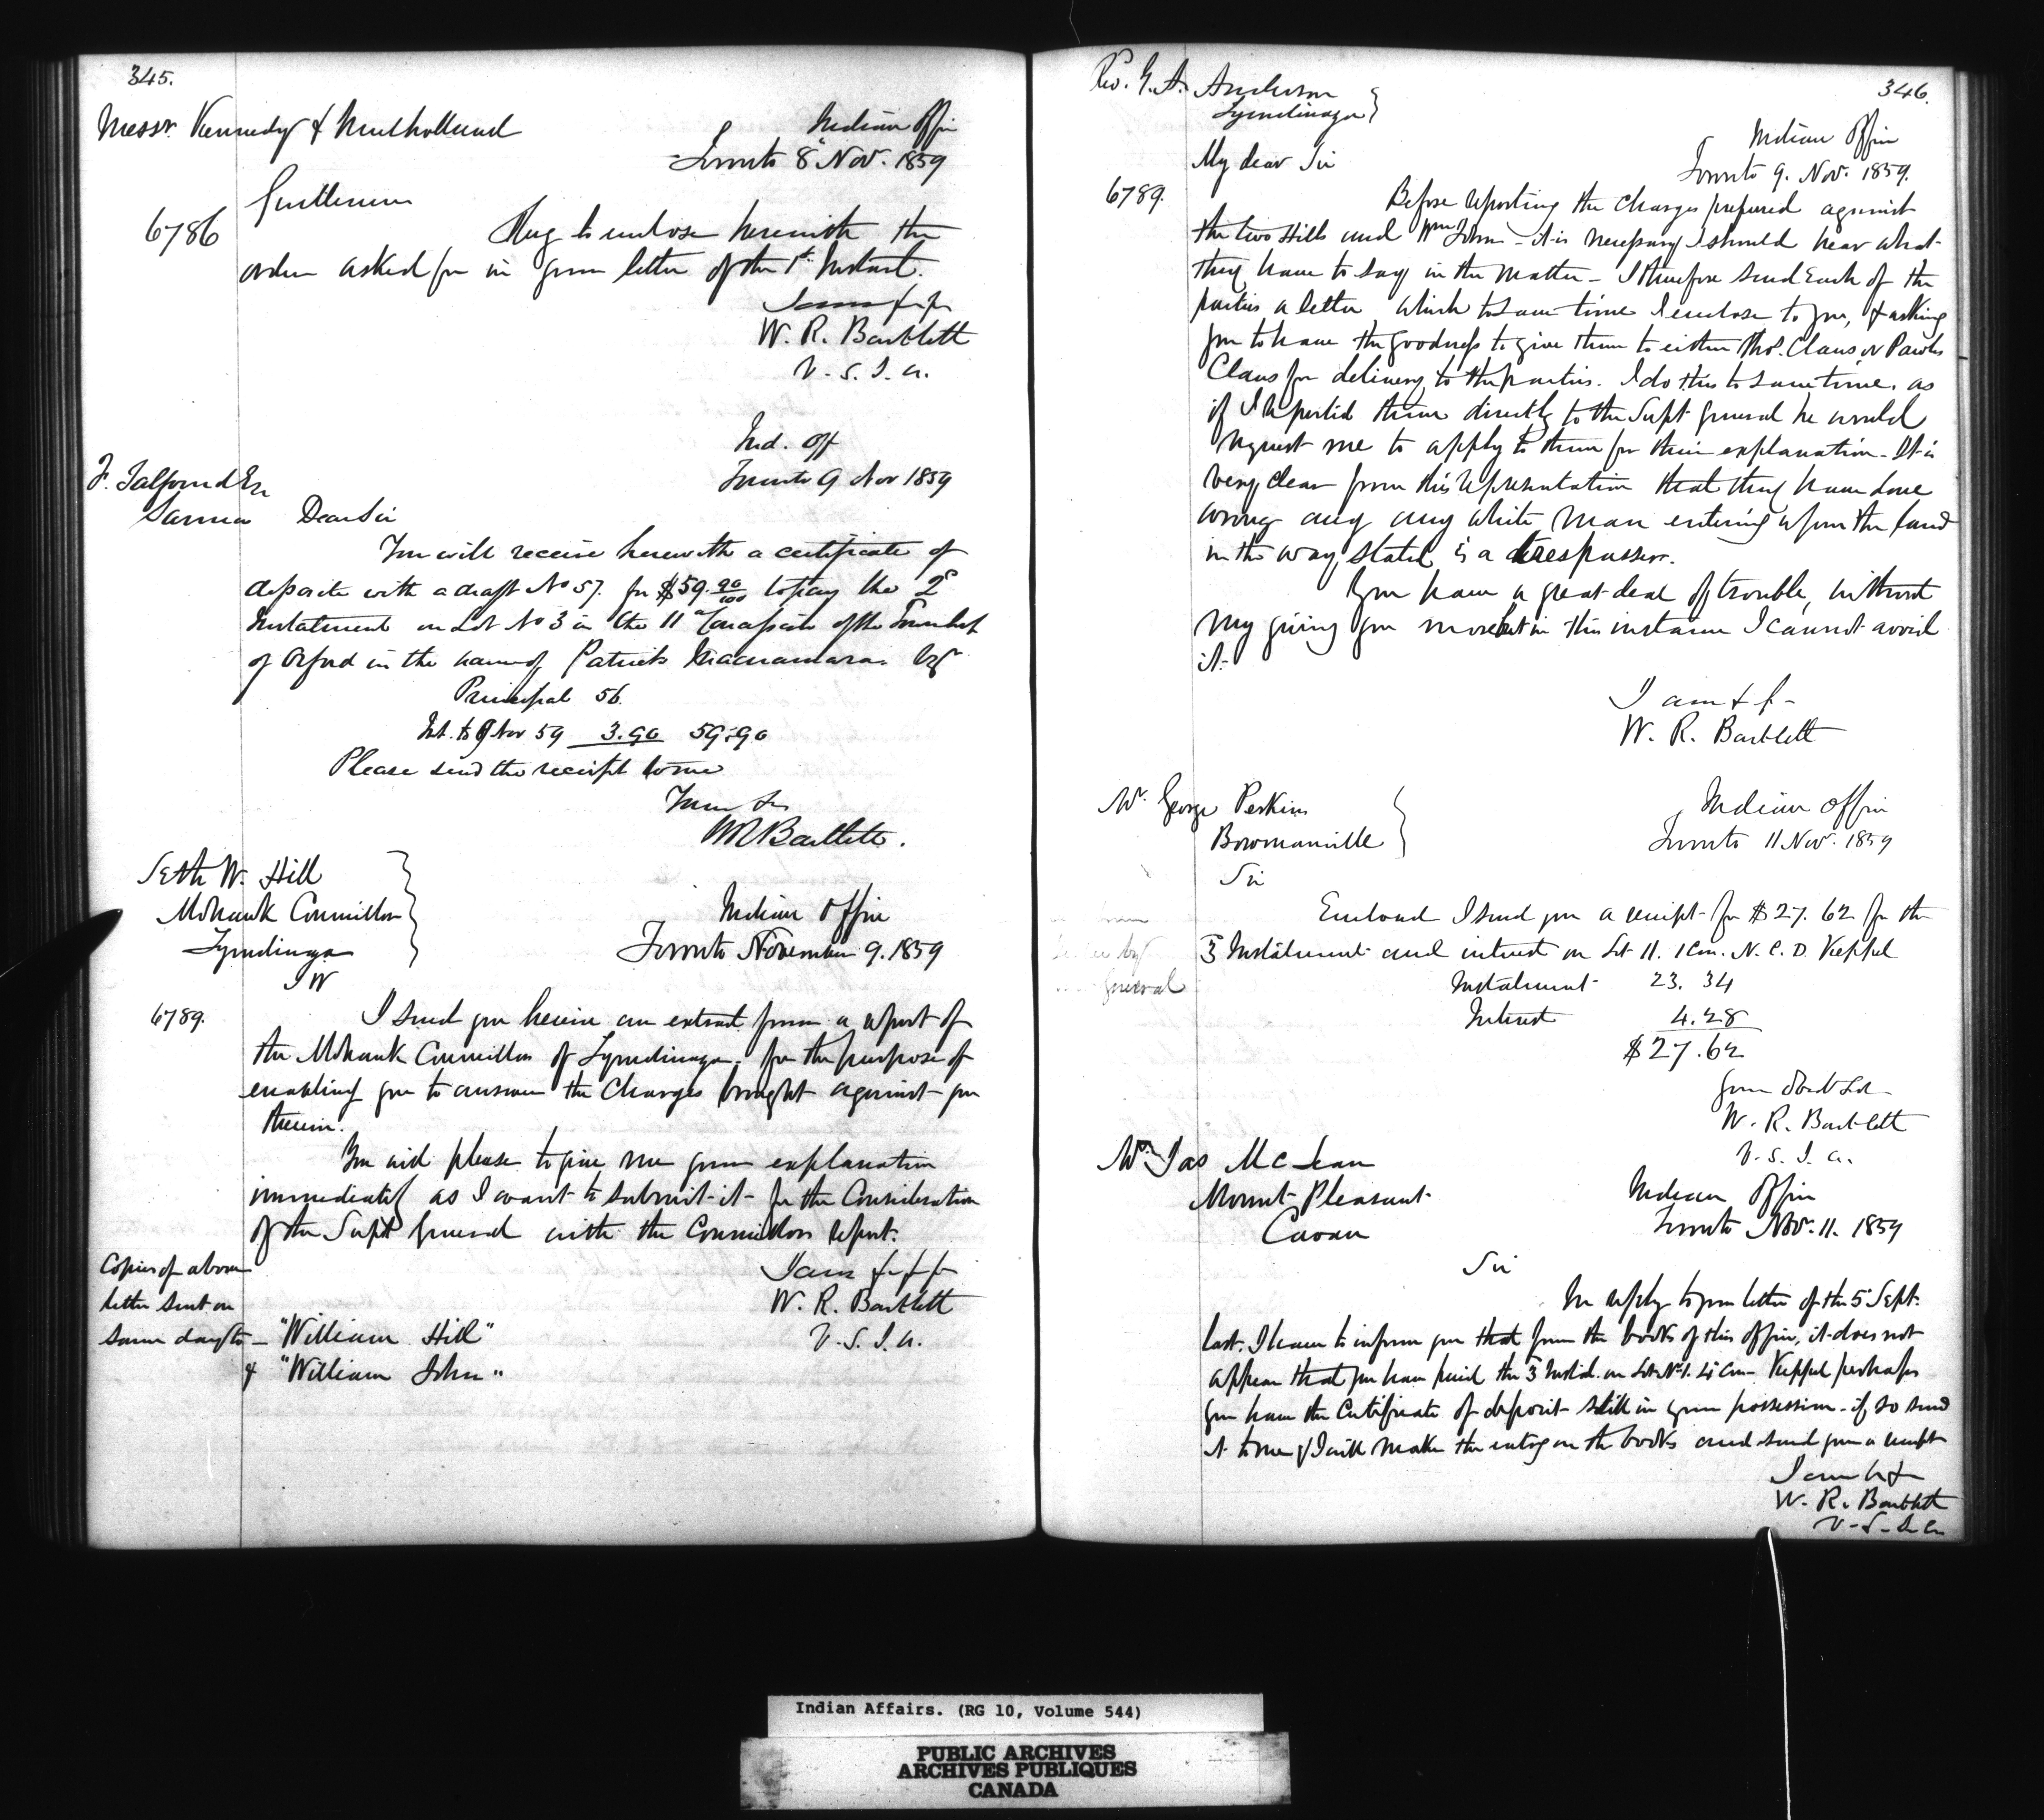 345.
Messrs. Kennedy & Mulholland
Indian Office
Toronto 8" Nov. 1859
Gentlemen
6786
I beg to enclose herewith the
order asked for in your letter of the 1st Instant.
I am &c &c
W. R. Bartlett
V. S. I. A.
Ind. Off
Toronto 9 Nov 1859
F. Talfourd Esq
Sarnia Dear Sir
You will receive herewith a certificate of
deposite with a draft No 57. for $59.90/100 to pay the 2d
Instalment on Lot No 3 in the 11 Concession of the Township
of Orford in the name of Patrick Macnamara.
Principal 56.
Int. to 9 Nov 59 3.90 59.90
Please send the receipt to me
Your &c
W R Bartlett.
Seth W. Hill
Mohawk Councillor
Tyendinaga
Indian Office
Toronto November 9. 1859
6789.
I send you herein an extract from a report of
the Mohawk Councillors of Tyendinaga. for the purpose of
enabling you to answer the Charges brought against you
therein.
You will please to give me your explanation
immediately as I want to submit it for the Consideration
of the Supt General with the Councillors report.
I am &c &c
W. R. Bartlett
V. S. I. A.
Copies of above
letter sent on
same day to – "William Hill"
& "William John"
346.
Rev. G. A. Anderson
Tyendinaga
Indian Office
Toronto 9. Nov. 1859.
My dear Sir
6789.
Before reporting the charges prepared against
the two Hills and Wm John – it is necessary I should hear what
they have to say in the matter – I therefore send Each of the
parties a letter which to save time I enclose to you, & asking
you to have the goodness to give them to either Thos. Claus or Powles
Claus for delivery to the parties. I do this to save time. as
if I reported them directly to the Supt General he would
request me to apply to them for their explanation – It is
very clear from this representation that they have done
wrong any any white man entering upon the land
in the way stated is a trespasser.
You have a great deal of trouble, without
my giving you more but in this instance I cannot avoid
it.
I am & &c –
W. R. Bartlett
Mr. George Perkins
Bowmanville
Indian Office
Toronto 11 Nov. 1859
Sir
Enclosed I send you a receipt for $27.62 for the
3 Instalment and interest on Lot 11. 1 Con. N. C. D. Keppel
General
Instalment 23. 34
Interest 4.28
$27.62
Your Obedt Sert –
W. R. Bartlett
V. S. I. A.
Mr. Jas McLean
Mount Pleasant
Cavan
Indian Office
Toronto Nov. 11. 1859
Sir
In reply to your letter of the 5" Sept.
last. I have to inform you that from the books of this office, it does not
appear that you have paid the 3 Instal. on Lot No 1. 4 Con – Keppel perhaps
you have the Certificate of deposit still in your possession – if so send
it to me & I will make the entry on the books and send you a receipt
I am &c
W. R. Bartlett
V. S. I. A.
Indian Affairs. (RG 10, Volume 544)
PUBLIC ARCHIVES
ARCHIVES PUBLIQUES
CANADA